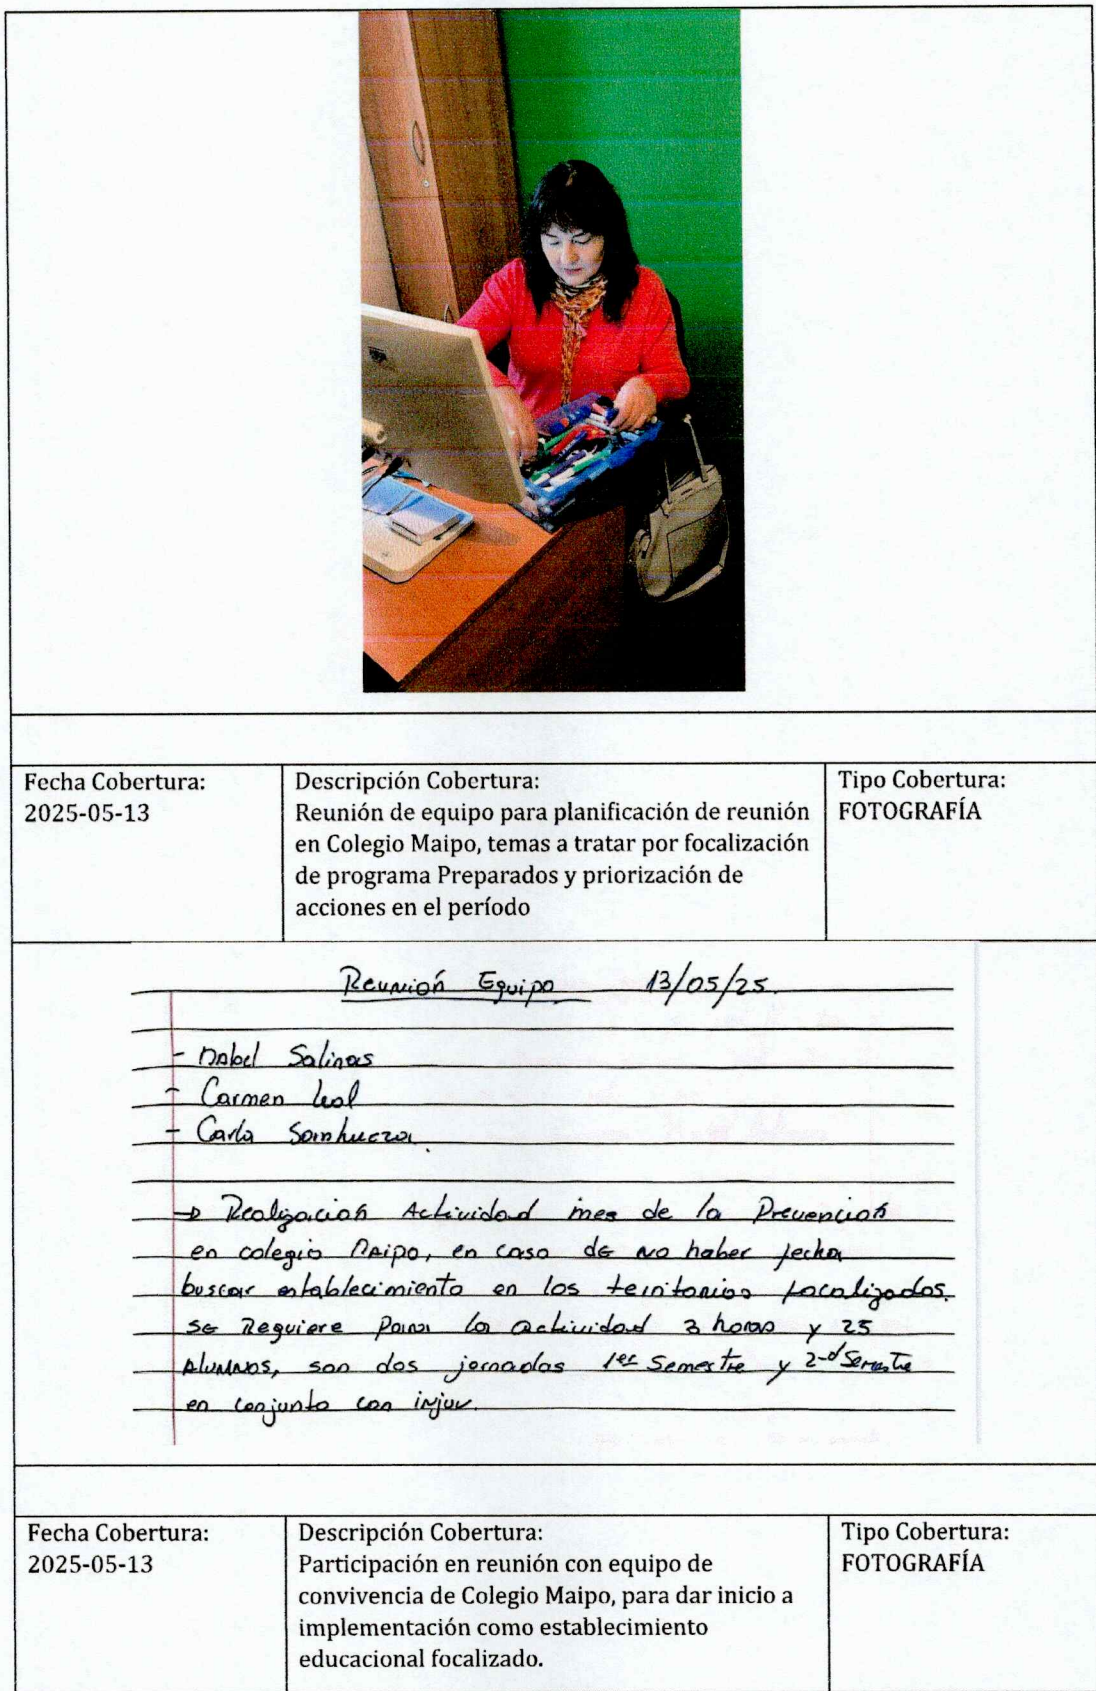 Fecha Cobertura:
2025-05-13
Descripción Cobertura:
Reunión de equipo para planificación de reunión
en Colegio Maipo, temas a tratar por focalización
de programa Preparados y priorización de
acciones en el período
Tipo Cobertura:
FOTOGRAFÍA
Reunión Equipo 13/05/25.
- Salinas
- Carmen Leal
- Carla Sanhueza.
→ Realización Actividad mes de la Prevención
en colegio Maipo, en caso de no haber fecha
buscar establecimiento en los territorios focalizados.
se Requiere para la actividad 3 horas y 25
alumnos, son dos jornadas 1er Semestre y 2do Semestre
en conjunto con injuv.
Fecha Cobertura:
2025-05-13
Descripción Cobertura:
Participación en reunión con equipo de
convivencia de Colegio Maipo, para dar inicio a
implementación como establecimiento
educacional focalizado.
Tipo Cobertura:
FOTOGRAFÍA